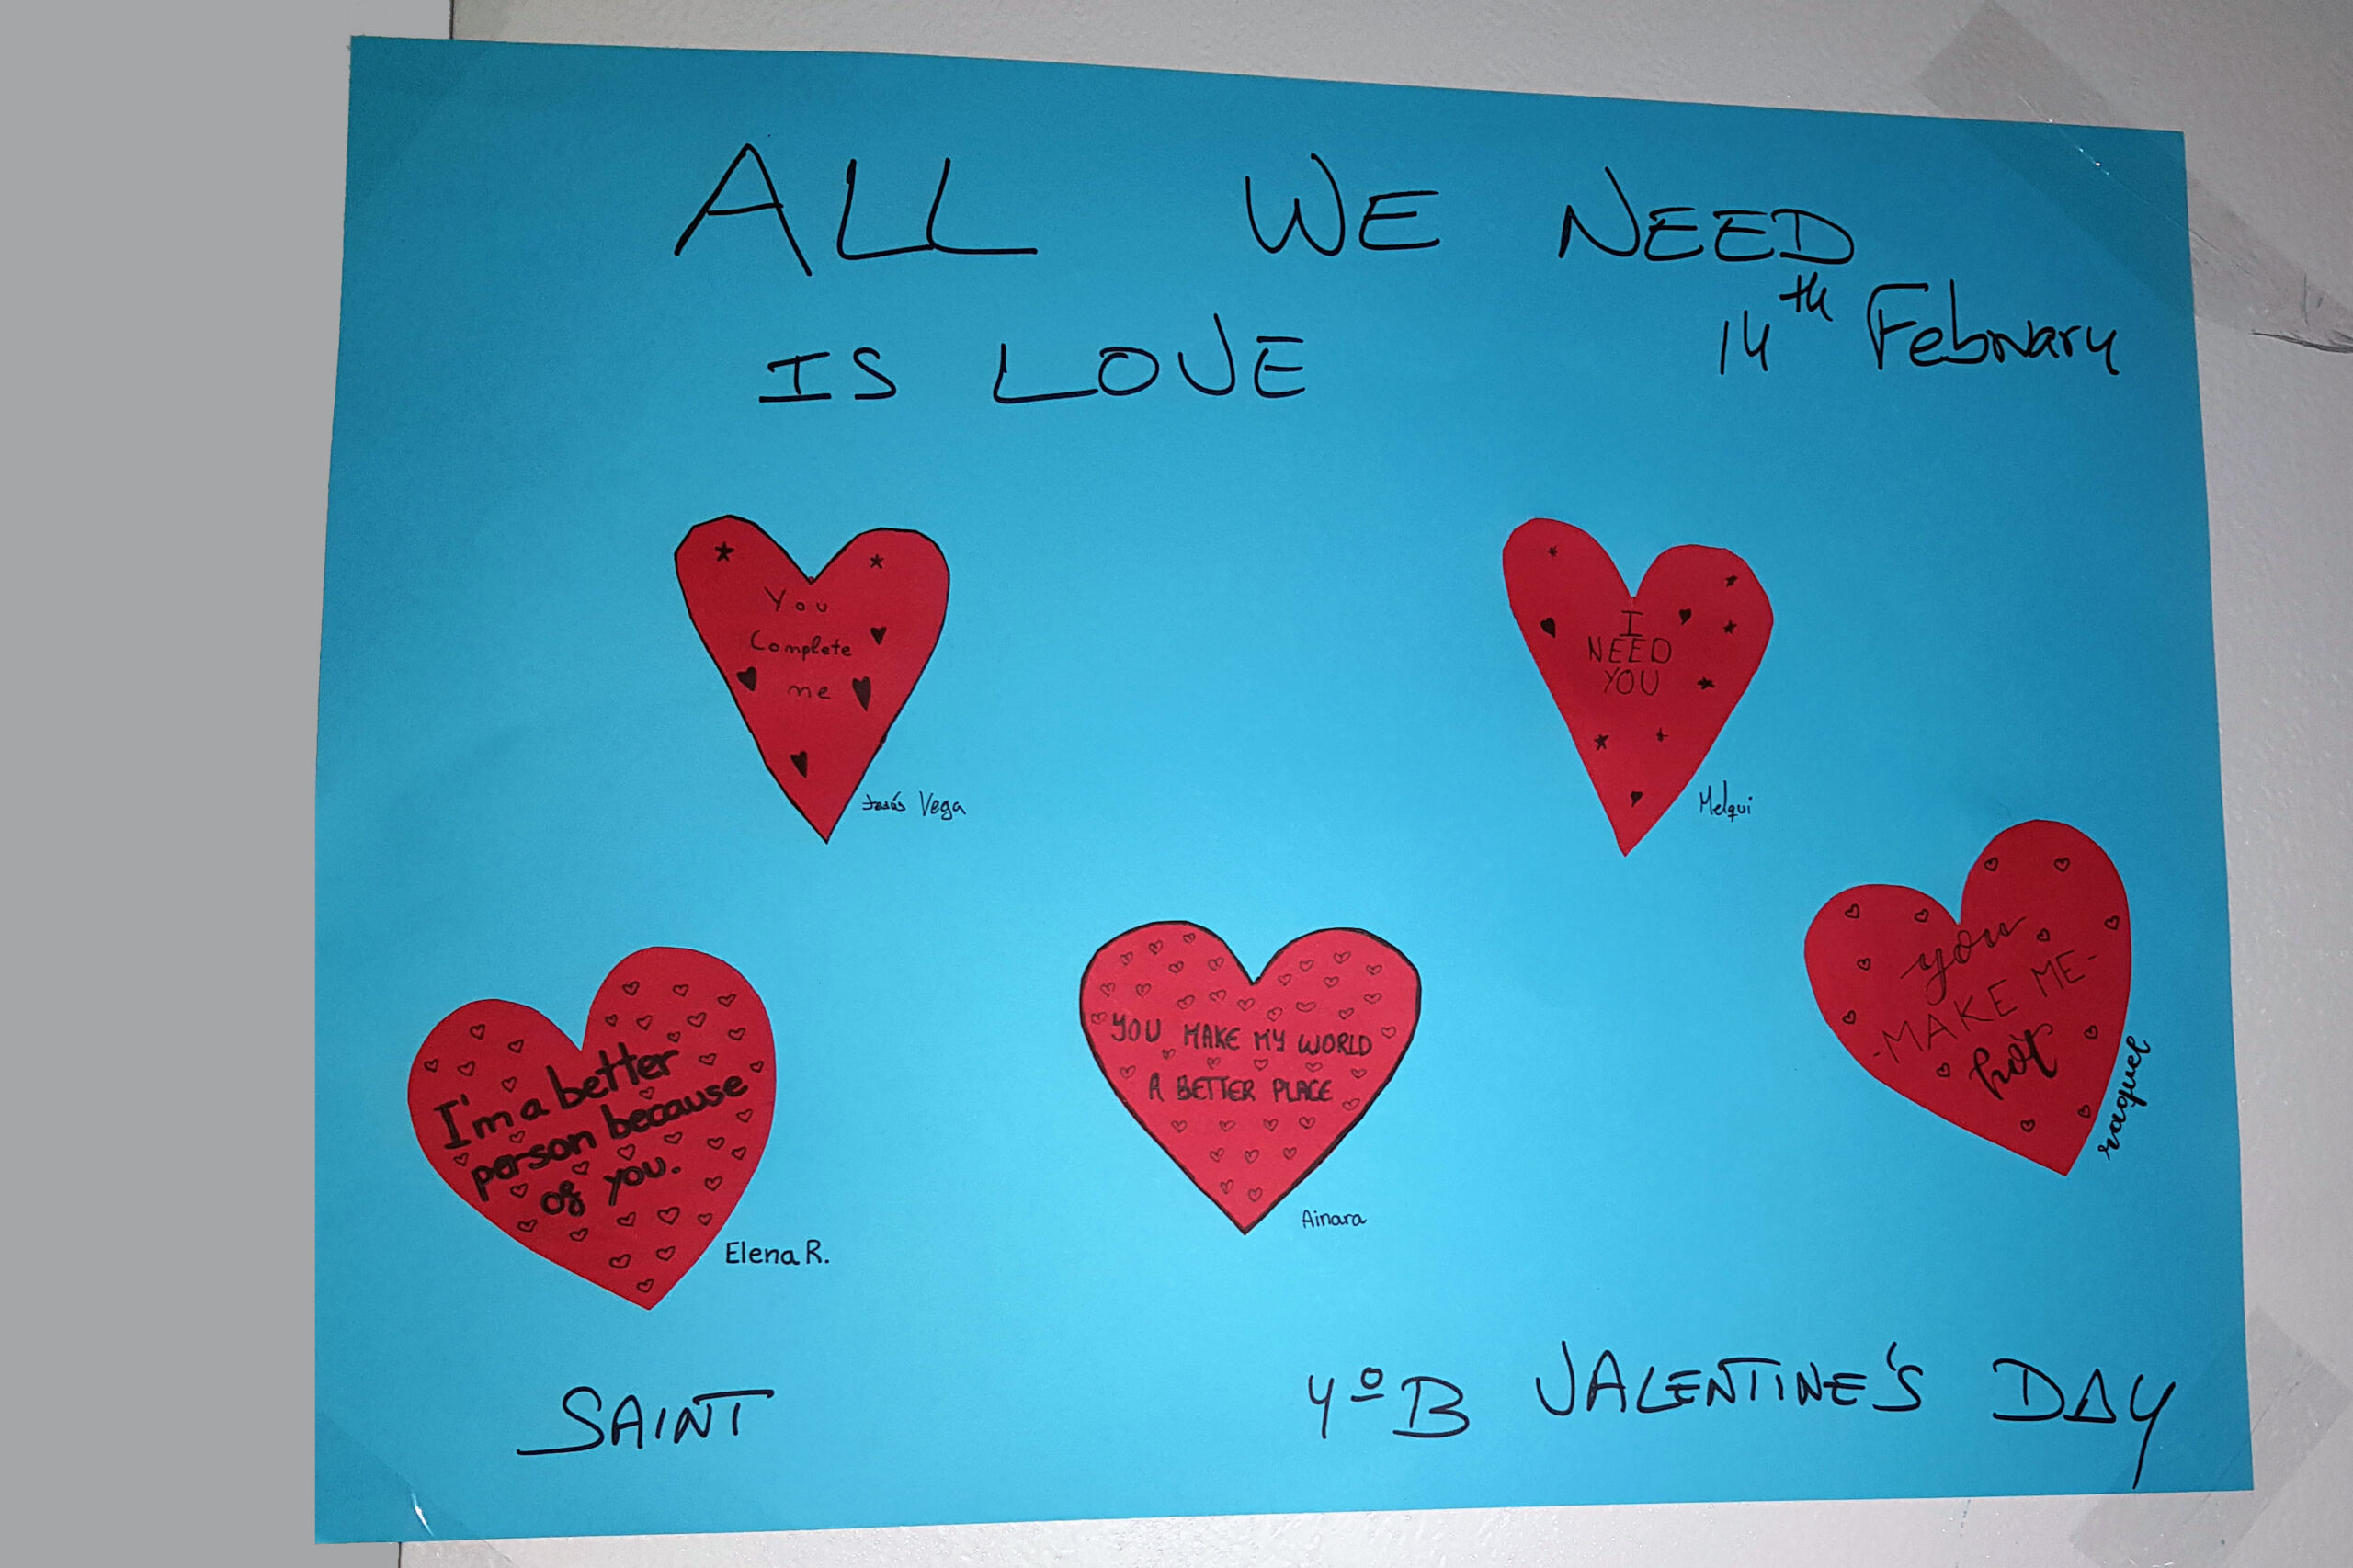 ALL WE NEED
IS LOVE
14th February
You
Complete
me
Jesús Vega
I
NEED
YOU
Melqui
I'm a better
person because
of you.
Elena R.
YOU MAKE MY WORLD
A BETTER PLACE
Ainara
you
-MAKE ME-
hot
raquel
SAINT 4ºB VALENTINE'S DAY